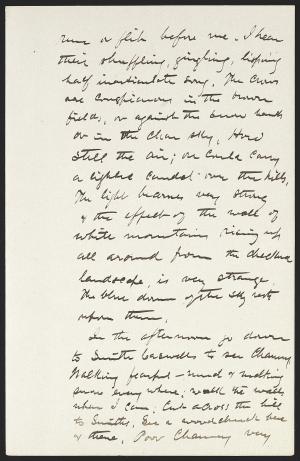 run or flit before me. I hear
their shuffling, gingling, lisping
half inarticulate song. The crows
are conspicuous in the brown
fields, or against the snow banks
or in the clear sky. How
still the air; one could carry
a lighted candle over the hills,
The light becomes very strong
& the effect of the wall of
white mountains rising up
all around from the checkered
landscape, is very strange.
The blue dome of the sky rests
upon them.
In the afternoon go down
to Smith Caswells to see Chauncy
Walking fearful - mud & melting
snow everywhere; walk the walls
when I can. Cut across the hill
to Smiths, See a woodchuck here
& there, Poor Chauncy very